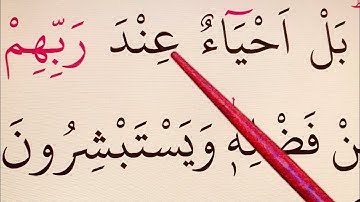 بَلْ اَحْيَآءٌ عِنْدَ رَبِّهِمْ
فَضْلِهٖ وَيَسْتَبْشِرُونَ